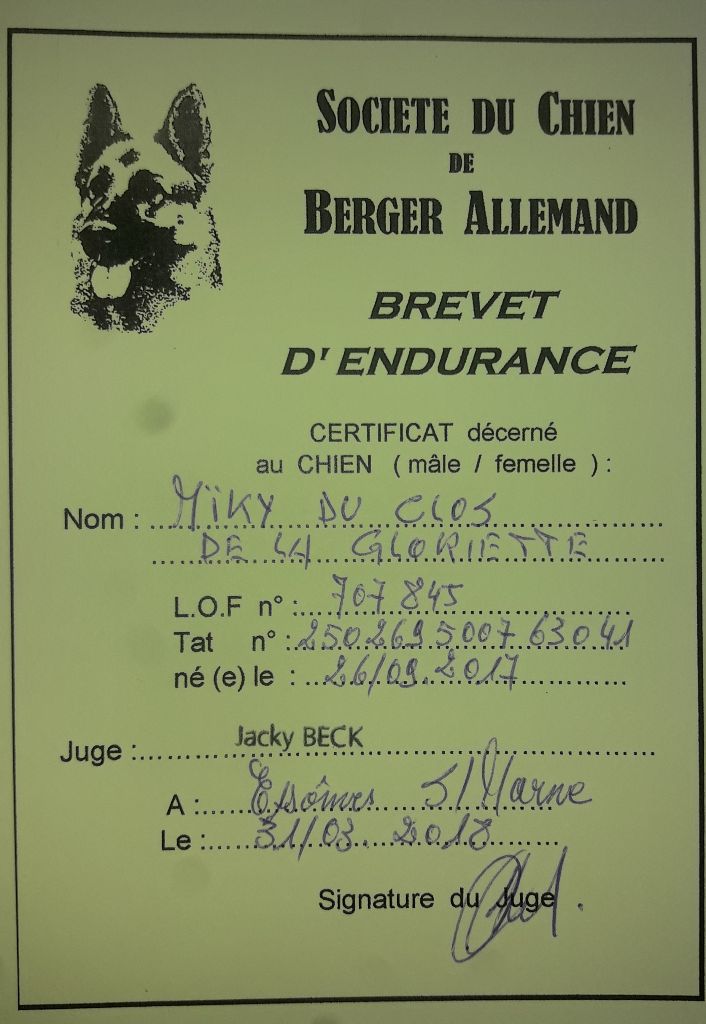 SOCIETE DU CHIEN
DE
BERGER ALLEMAND
BREVET
D'ENDURANCE
CERTIFICAT décerné
au CHIEN ( mâle / femelle ) :
Nom : MÏKY DU CLOS
DE LA GLORIETTE
L.O.F n° : 707 845
Tat n° : 250269500763041
né (e) le : 26/09.2017
Juge : Jacky BECK
A : Essômes S/Marne
Le : 31/03.2018
Signature du Juge